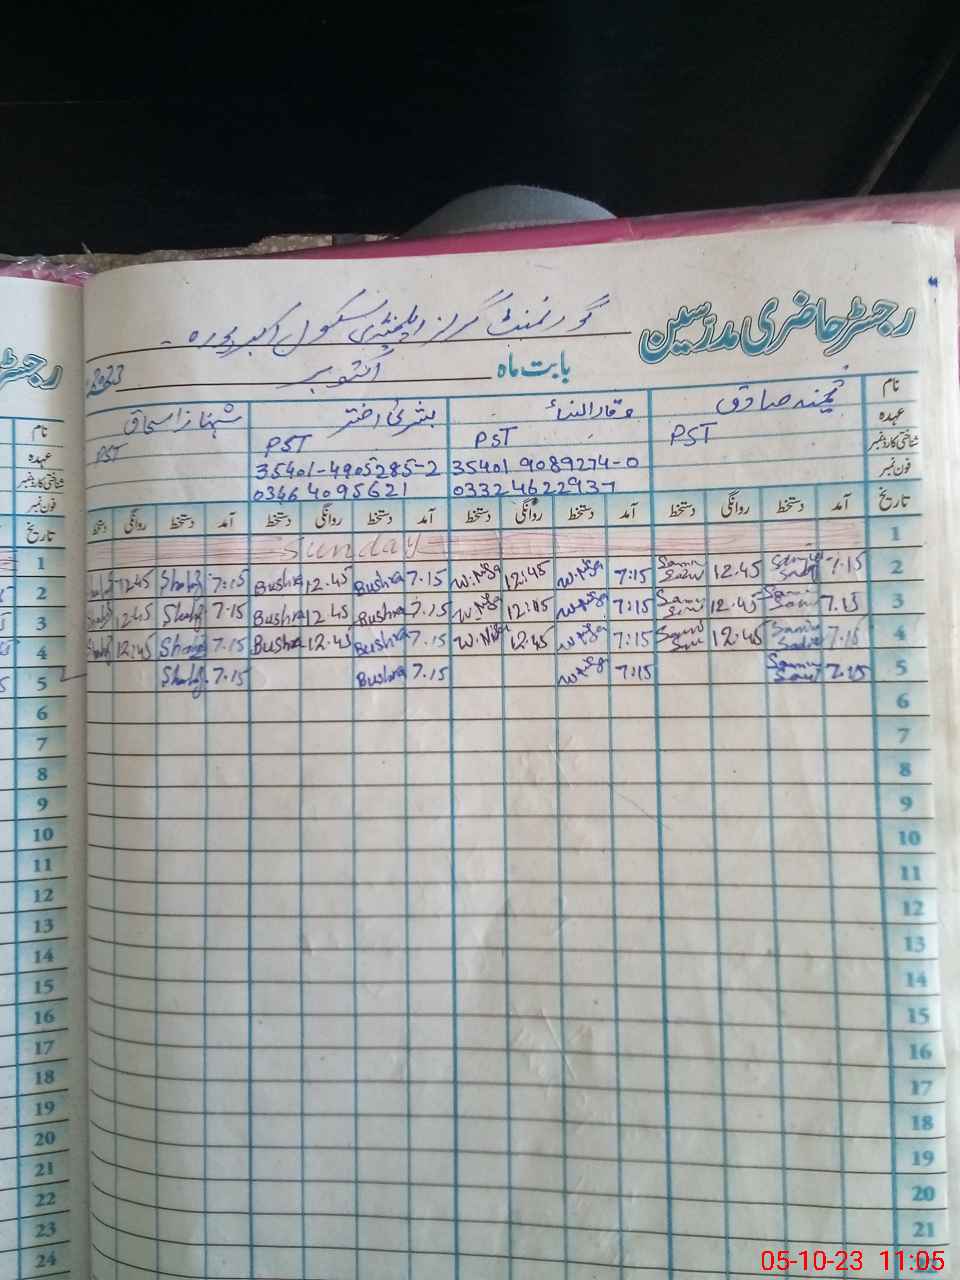 رجسٹر حاضری مدرسین
گورنمنٹ گرلز ایلیمنٹری سکول اکبر پورہ۔
بابت ماہ اکتوبر 2023
نام ثمینہ صادق وقار النساء بشریٰ اختر شہناز اسحاق
عہدہ PST PST PST PST
شناختی کارڈ نمبر 35401 9089274-0 35401-4905285-2
فون نمبر 03324622937 03464095621
تاریخ آمد دستخط روانگی دستخط آمد دستخط روانگی دستخط آمد دستخط روانگی دستخط آمد دستخط روانگی دستخط
1 Sunday
2 7.15 12.45 7:15 W.Nisa 12:45 W.Nisa 7.15 Bushra 12.45 Bushra 7:15 Shahz 12.45 Shahz
3 7.15 12.45 7:15 W.Nisa 12:45 W.Nisa 7.15 Bushra 12.45 Bushra 7.15 Shahz 12.45 Shahz
4 7.15 12.45 7:15 W.Nisa 12:45 W.Nisa 7.15 Bushra 12.45 Bushra 7.15 Shahz 12.45 Shahz
5 7.15 7:15 W.Nisa 7.15 Bushra 7.15 Shahz
6
7
8
9
10
11
12
13
14
15
16
17
18
19
20
21
رجسٹر
نام
عہدہ
شناختی کارڈ نمبر
فون نمبر
تاریخ
1
2
3
4
5
6
7
8
9
10
11
12
13
14
15
16
17
18
19
20
21
22
23
24
05-10-23 11:05